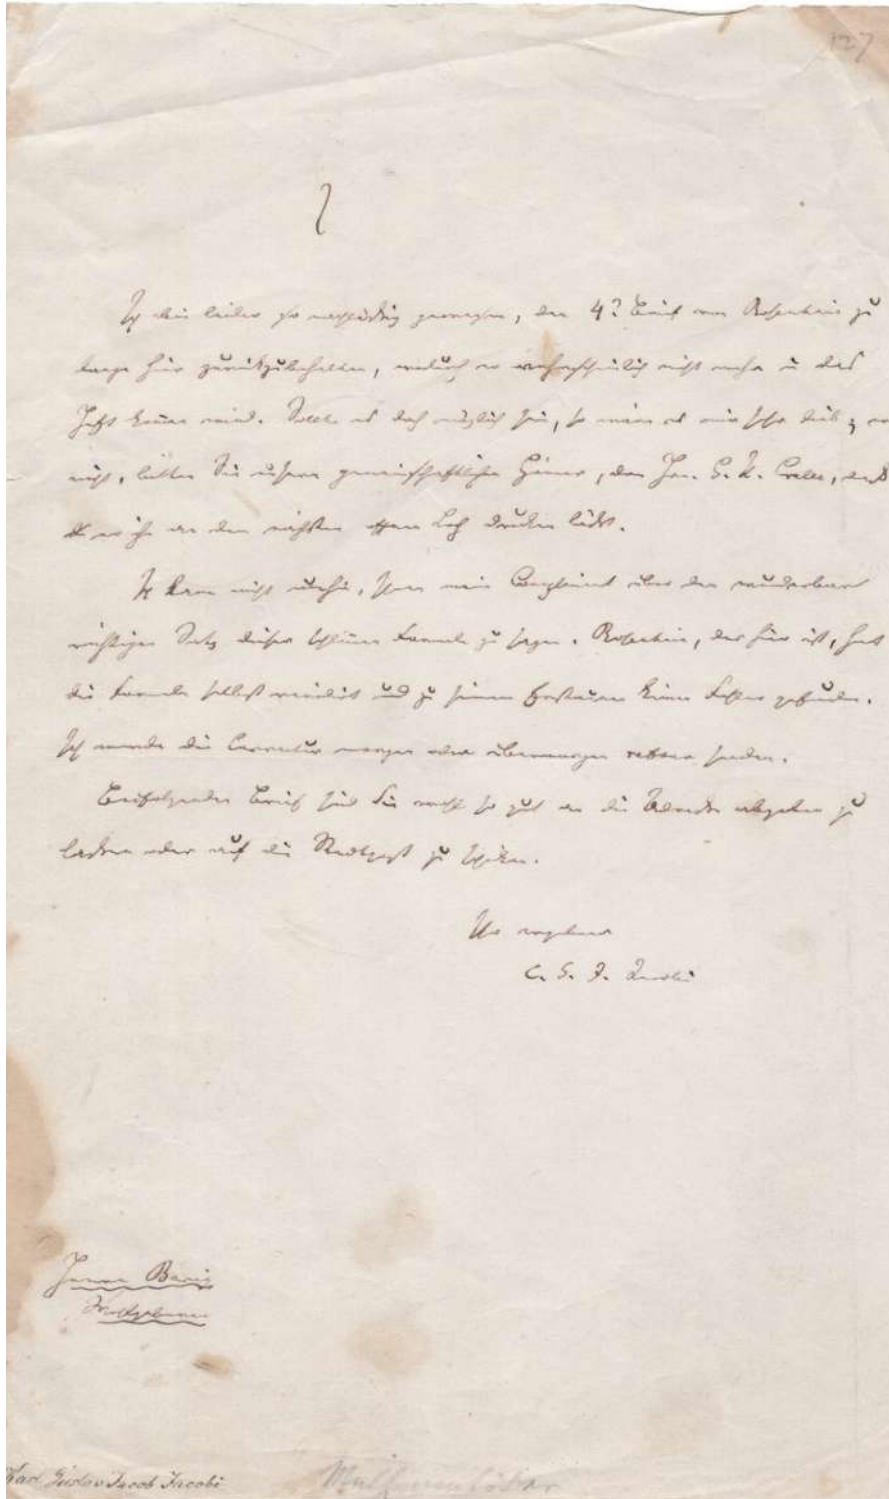 127
Ich bin leider so nachlässig gewesen, den 4t Brief von Rosenhain zu
lange hier zurückzubehalten, wodurch er wahrscheinlich nicht mehr in das
Heft kommen wird. Sollte es doch möglich sein, so wäre es mir sehr lieb; wo
nicht, bitten Sie unsern gemeinschaftlichen Gönner, den Hrn. G. R. Crelle, daß
er ihn an den nächsten offnen drucken läßt.
Ich kann nicht umhin, Ihnen mein Compliment über den wunderbar
richtigen Satz dieser schlimmen Formeln zu sagen. Rosenhain, der hier ist, hat
die Formeln selbst revidirt und zu seinem Erstaunen keine Fehler gefunden.
Ich werde die Correctur morgen oder übermorgen senden.
Beifolgenden Brief sind Sie wohl so gut an die Adresse abgeben zu
lassen oder auf die Stadtpost zu schicken.
Ihr ergebener
C. G. J. Jacobi
Herrn
Wohlgeboren
Karl Gustav Jacob Jacobi